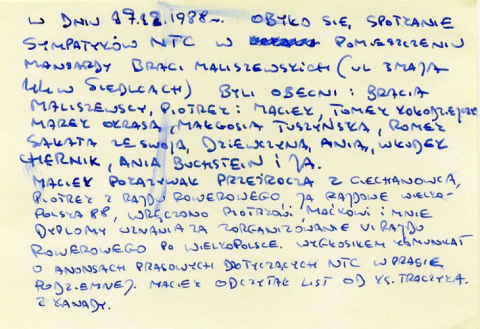 W DNIU 17.12.1988 R. OBYŁO SIĘ, SPOTKANIE
SYMPATYKÓW NTC W POMIESZCZENIU
MANSARDY BRACI MALISZEWSKICH (UL 3 MAJA
W SIEDLCACH) BYLI OBECNI: BRACIA
MALISZEWSCY, PIOTREK i MACIEK, TOMEK KOŁODZIEJCZYK
MAREK OKRASA, MAŁGOSIA TUSZYŃSKA, ROMEK
SAKATA ZE SWOJĄ, DZIEWCZYNĄ, ANIĄ, WŁODEK
CHERNIK, ANIA BUCHSTEIN i JA.
MACIEK POKAZYWAŁ PRZEŹROCZA Z CIECHANOWCA,
PIOTREK Z RAJDU ROWEROWEGO JA RAJDOWE WIELKO-
POLSKA 88, WRĘCZONO PIOTRKOWI MAĆKOWI i MNIE
DYPLOMY UZNANIA ZA ZORGANIZOWANIE VI RAJDU
ROWEROWEGO PO WIELKOPOLSCE. WYGŁOSIŁEM KOMUNIKAT
O ANONSACH PRASOWYCH DOTYCZĄCYCH NTC W PRASIE
PODZIEMNEJ. MACIEK ODCZYTAŁ LIST OD KS. TRACZYKA.
Z KANADY.